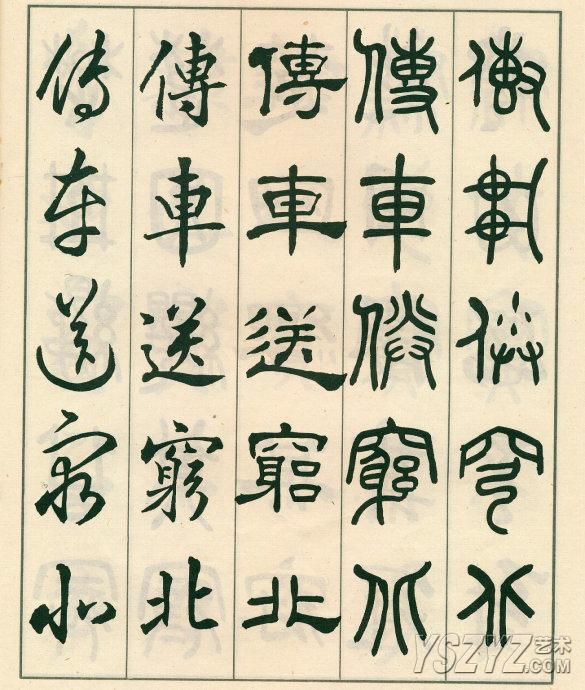 傳車送窮北
傳車送窮北
傳車送窮北
傳車送窮北
傳車送窮北
YSZYZ艺术
.COM